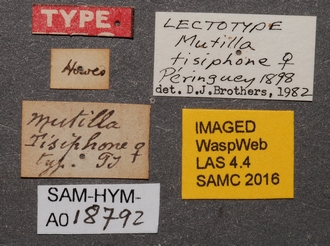 TYPE
Howes
mutilla
Tisiphone ♀
typ. TJ
SAM-HYM-
A018792
LECTOTYPE
Mutilla
tisiphone ♀
Péringuey, 1898
det. D.J. Brothers, 1982
IMAGED
WaspWeb
LAS 4.4
SAMC 2016